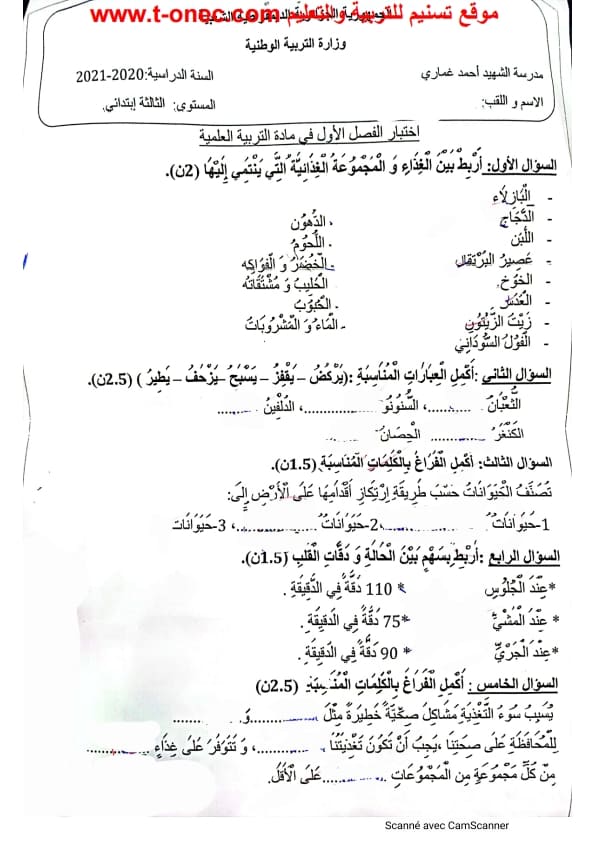 موقع تسنيم للتربية والتعليم www.t-onec.com
وزارة التربية الوطنية
مدرسة الشهيد أحمد غماري
السنة الدراسية:2020-2021
الاسم و اللقب:
المستوى: الثالثة إبتدائي.
اختبار الفصل الأول في مادة التربية العلمية
السؤال الأول: أَرْبِطُ بَيْنَ الْغِذَاءِ وَ الْمَجْمُوعَةُ الْغِذَائِيَّةُ الَّتِي يَنْتَمِي إِلَيْهَا (2ن).
- الْبَازِلَاءِ
- الدَّجَاجِ
- اللَّبَنِ
- عَصِيرُ الْبُرْتِقَالِ
- الخَوْخِ
- الْعَدَسِ
- زَيْتُ الزَّيْتُونِ
- الْفُولُ السُّودَانِي
- الدُّهُون
- اللُّحُومُ
- الْخُضَرُ وَ الْفَوَاكِه
- الْحَلِيبُ وَ مُشْتَقَّاتُهُ
- الْحُبُوبُ
- الْمَاءُ وَ الْمَشْرُوبَاتُ
السؤال الثاني :أُكْمِلُ الْعِبَارَاتِ الْمُنَاسِبَةِ :(يَرْكُضُ – يَقْفِزُ – يَسْبَحُ – يَزْحَفُ – يَطِيرُ ) (2.5ن).
الثُّعْبَانُ ............، السُّنُونُو ............، الدُّلْفِينُ ........
الكَنْغَرُ ............ الْحِصَانُ ............
السؤال الثالث: أُكْمِلُ الْفَرَاغَ بِالْكَلِمَاتِ الْمُنَاسِبَةِ (1.5ن).
تُصَنَّفُ الْحَيَوَانَاتُ حَسَبَ طَرِيقَةِ إِرْتِكَازِ أَقْدَامِهَا عَلَى الْأَرْضِ إِلَى:
1-حَيَوَانَاتُ ............، 2-حَيَوَانَاتُ ............، 3-حَيَوَانَات ............
السؤال الرابع :أَرْبِطُ بِسَهْمٍ بَيْنَ الْحَالَةِ وَ دَقَّاتِ الْقَلْبِ (1.5ن).
*عِنْدَ الْجُلُوسِ * 110 دَقَّةً فِي الدَّقِيقَةِ .
*عِنْدَ الْمَشْيِ *75 دَقَّةً فِي الدَقِيقَةِ .
*عِنْدَ الْجَرْيِ * 90 دَقَّةً فِي الدَّقِيقَةِ .
السؤال الخامس : أُكْمِلُ الْفَرَاغَ بِالْكَلِمَاتِ الْمُنَاسِبَةِ (2.5ن)
يُسَبِّبُ سُوءُ التَّغْذِيَةِ مَشَاكِلَ صِحِّيَّةً خَطِيرَةً مِثْلَ ............وَ ............
لِلْمُحَافَظَةِ عَلَى صِحَتِنَا ،يَجِبُ أَنْ تَكُونَ تَغْذِيَتُنَا ............، وَ تَتَوَفَّرُ عَلَى غِذَاءٍ ............
مِنْ كُلِّ مَجْمُوعَةٍ مِنَ الْمَجْمُوعَاتِ ............عَلَى الْأَقَلِّ.
Scanné avec CamScanner